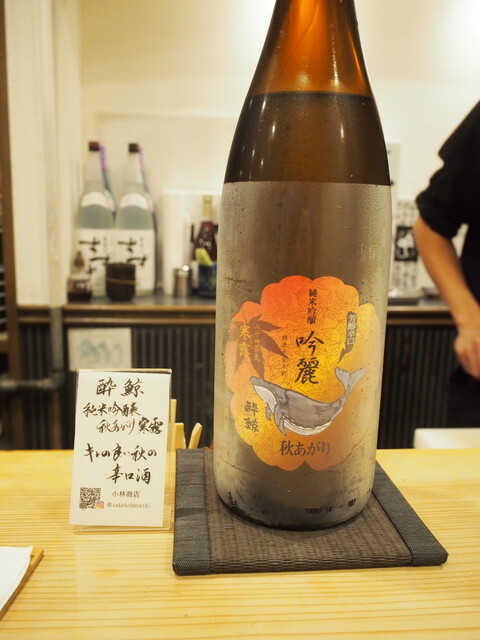 酔鯨
純米吟醸
秋あがり 寒露
キレの良い秋の
辛口酒
小林商店
@sakekobayashi
純米吟醸
吟麗
芳醇辛口
寒露
酔鯨
秋あがり